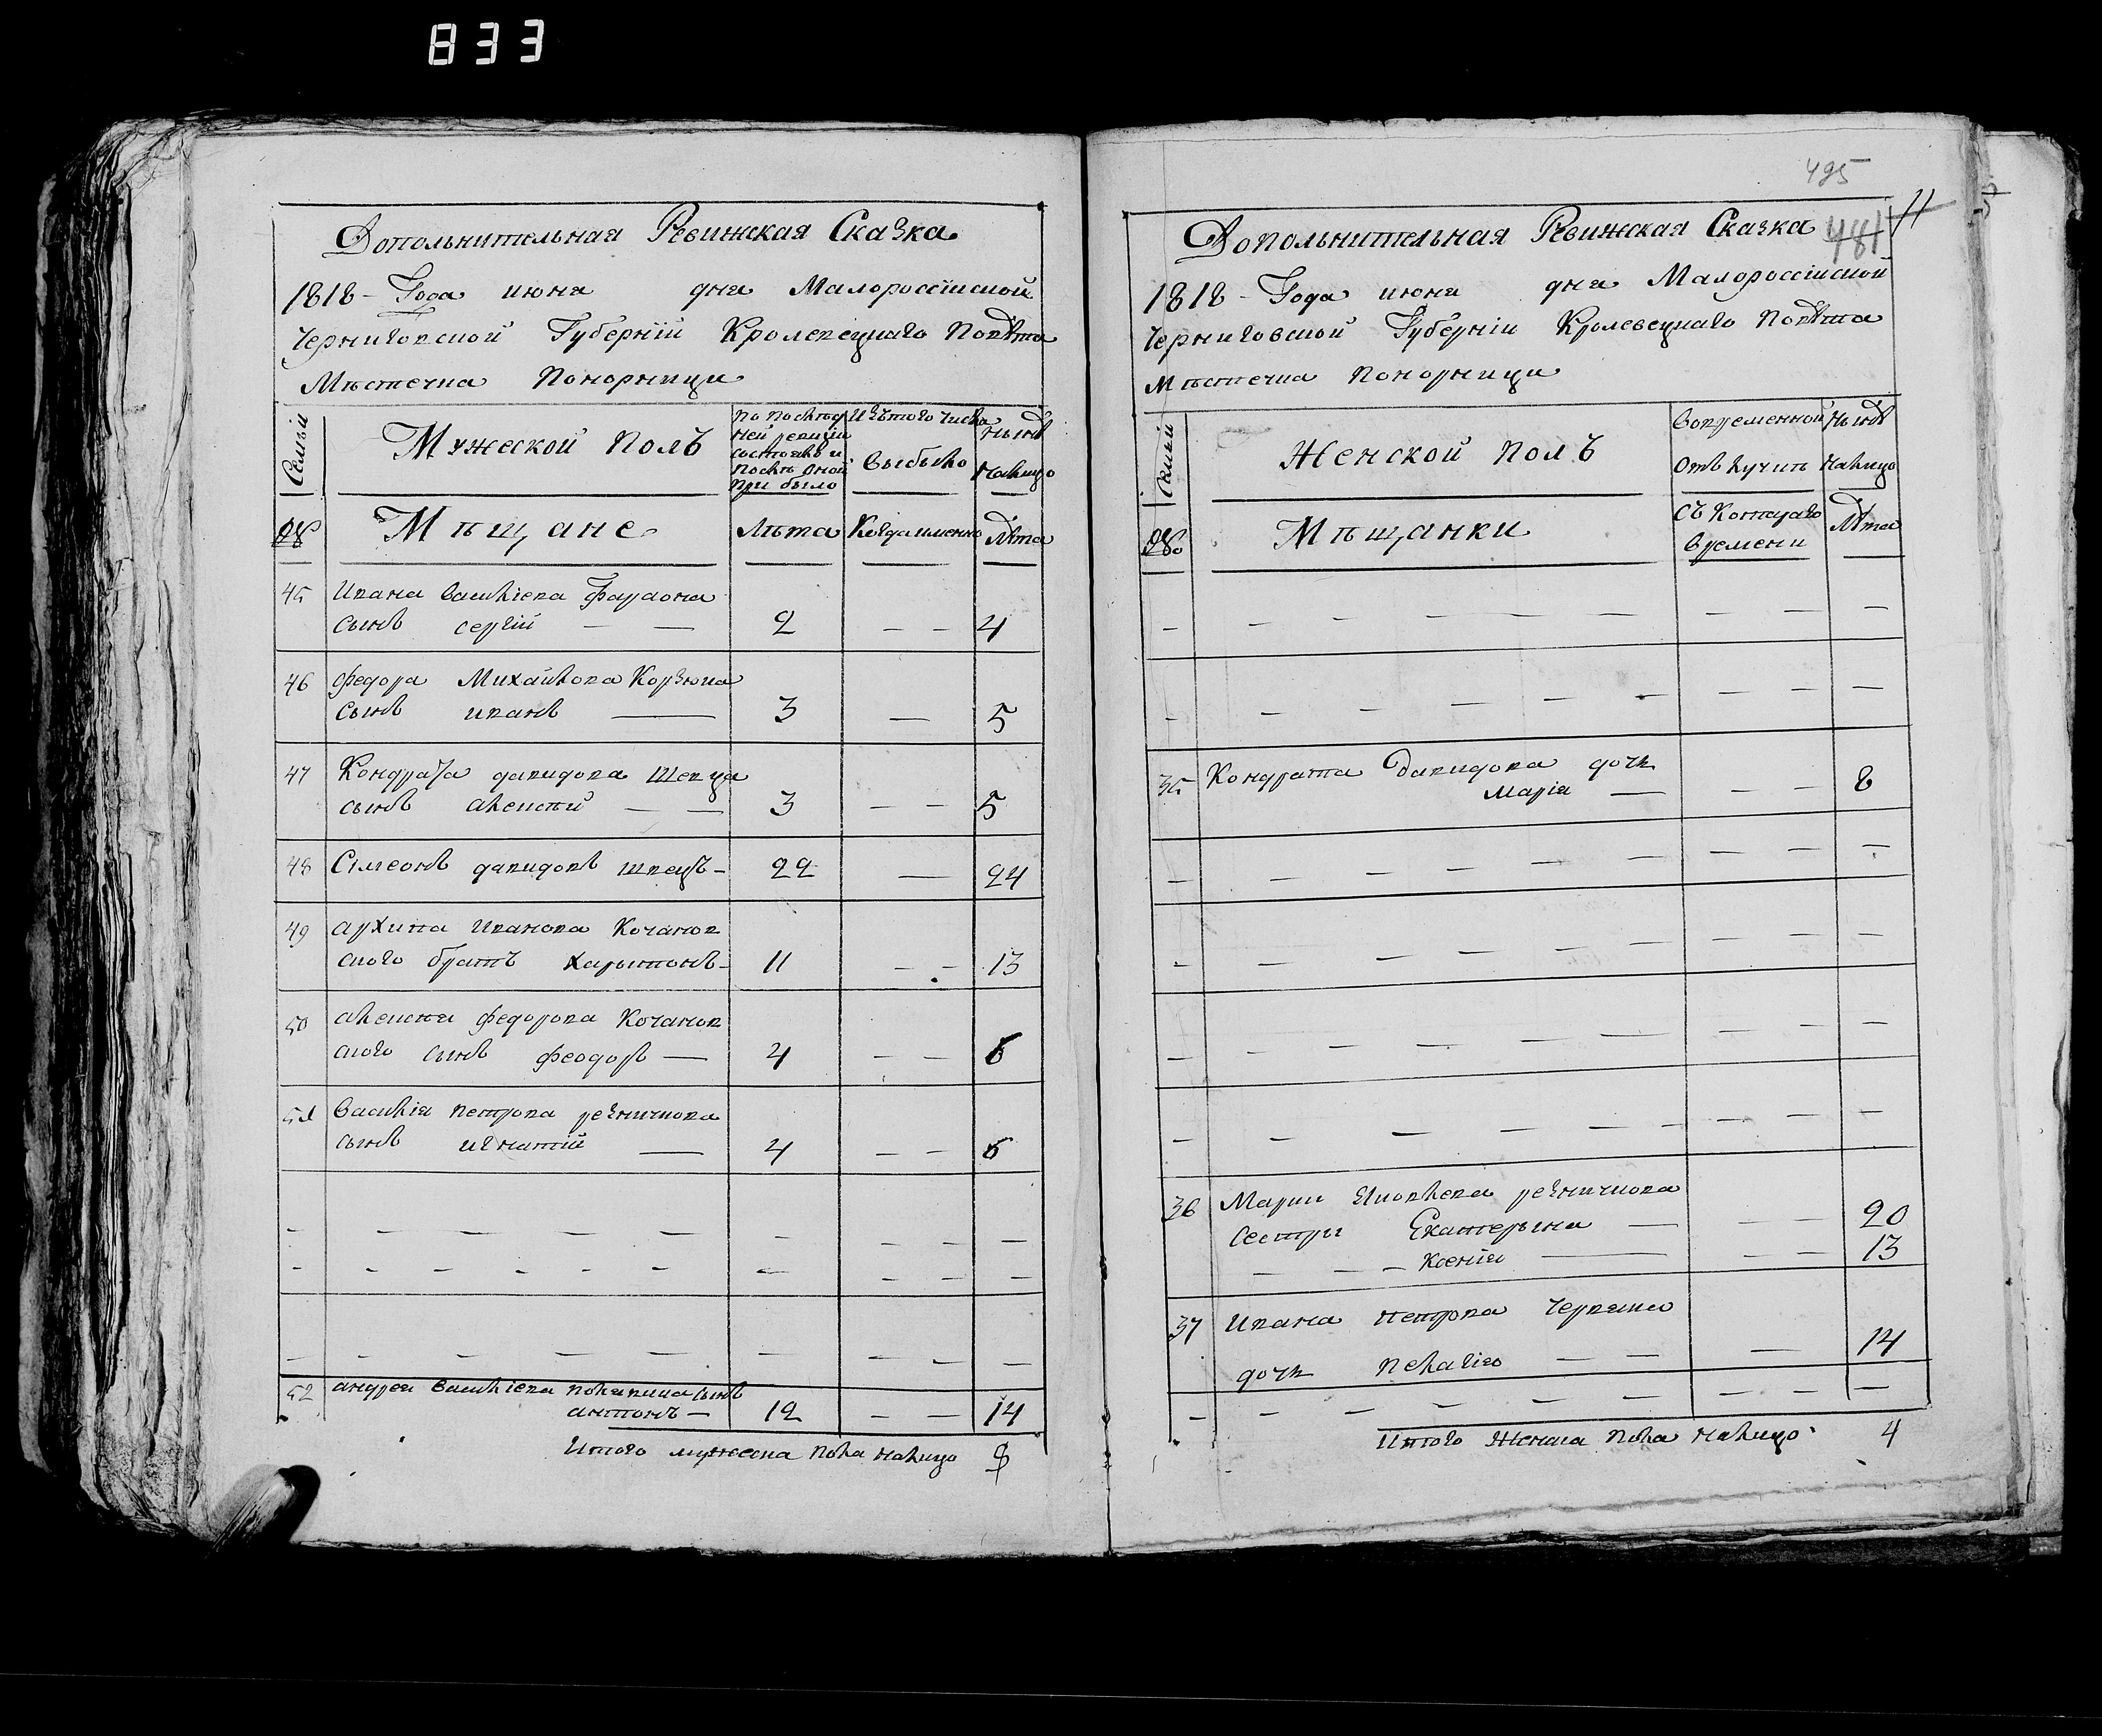 833
Допольнительная Ревижская Сказка
1818 - Года июня дня Малороссійской
Черниговской Губерніи Кролевецкаго Повѣта
Мѣстечка Понорници
Семьи
Мужеской полъ
По послѣд
ней ревизіи
состояло и
послѣ оной
при было
Изътого числа
выбыло
Нынѣ
налицо
№
Мѣщане
Лѣта
Когда именно
Лѣта
45 Ивана Василіева Фараона
сынъ сергій — — 2 — — 4
46 Федора Михайлова Корзюка
сынъ иванъ — 3 — 5
47 Кондрата давидова Шевца
сынъ алексѣй — — 3 — — 5
48 Сімеонъ давидовъ швецъ - 22 — 24
49 архипа иванова Кочанов
ского братъ харытонъ - 11 — — 13
50 алексѣя федорова Кочанов
ского сынъ феодоръ — 4 — — 6
51 василія петрова резничкова
сынъ игнатій — 4 — — 6
52 андрея василіева сынъ
антонъ — 12 — — 14
Итого мужеска пола налицо 8
495
481
11
Допольнительная Ревижская Сказка
1818 - Года июня дня Малороссійской
Черниговской Губерніи Кролевецкаго Повѣта
Мѣстечка Понорници
Семьи
Женской полъ
Вовременной
отлучкѣ
Нынѣ
налицо
№
Мѣщанки
Съ Котораго
времени
Лѣта
35 Кондрата Давидова дочь
Марія — — — 8
36 Марии резничкова
сестры Екатерына — — — 20
— — — Ксенія — — — 13
37 Ивана петрова
дочь Пелагія — — — 14
Итого Женска пола налицо 4